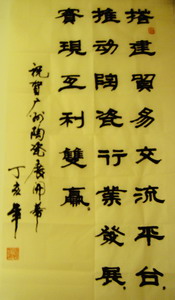 搭建貿易交流平台
推动陶瓷行業發展
實現互利雙贏
祝賀广州陶瓷展開幕
丁亥年